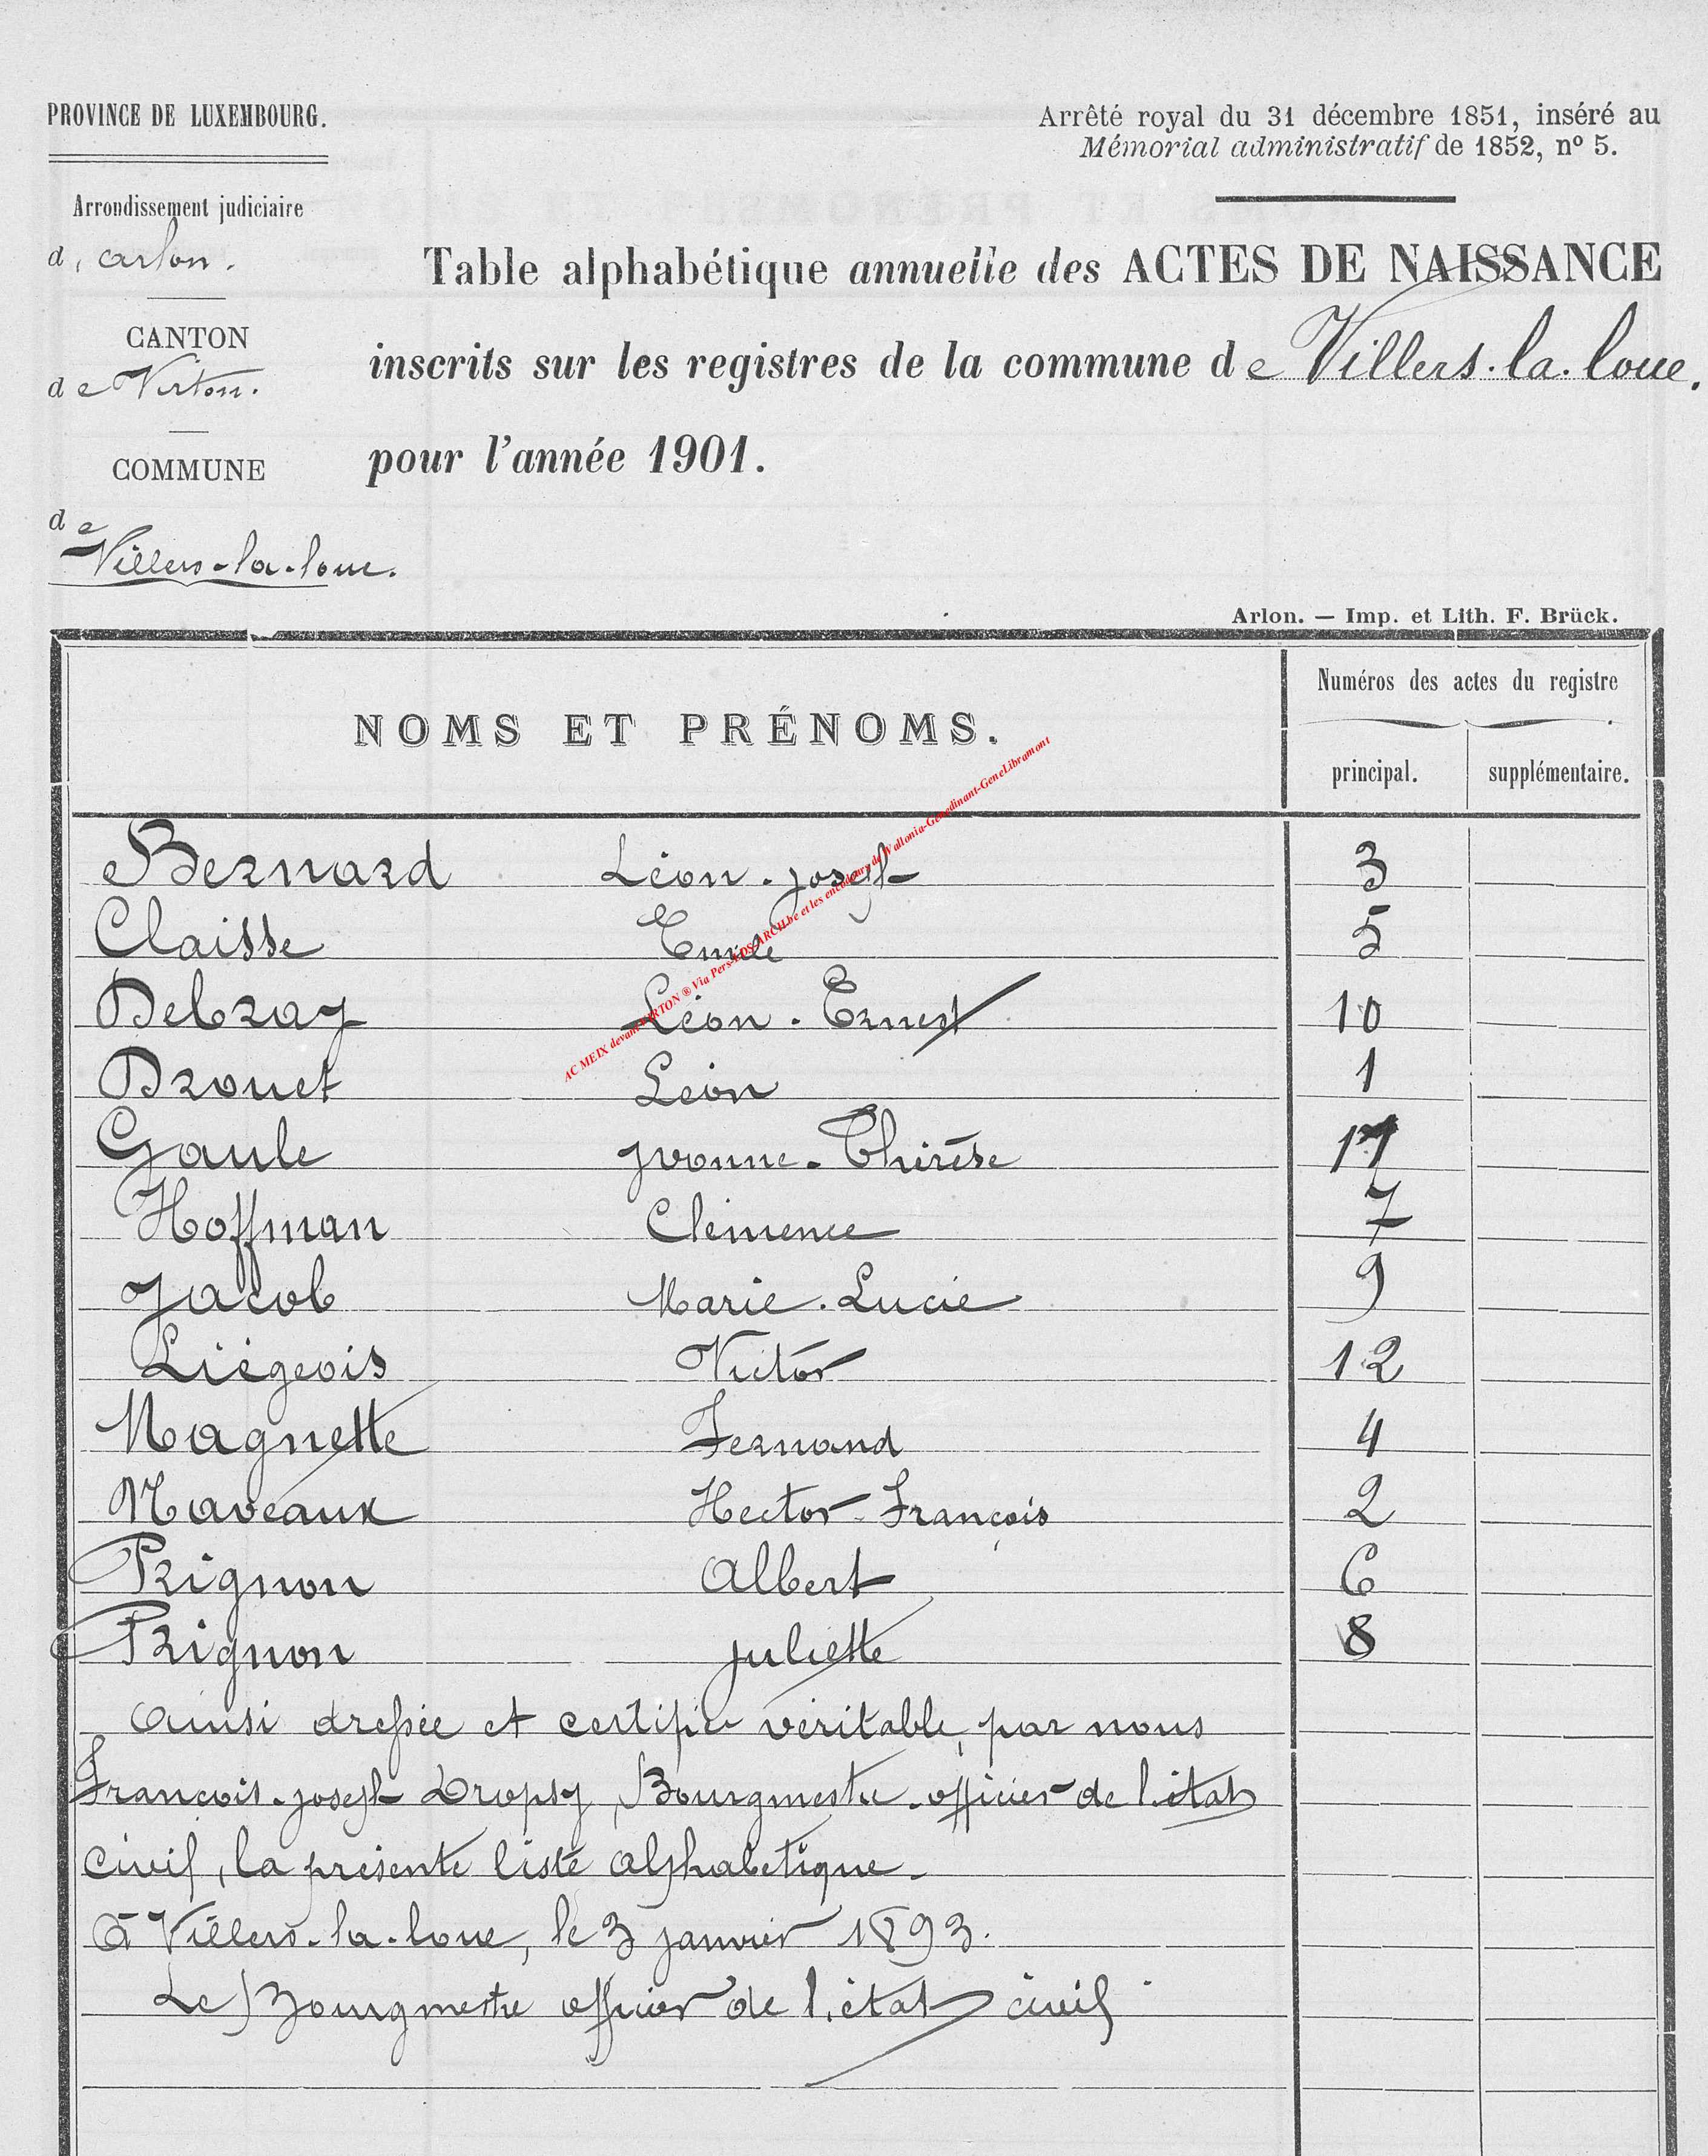 PROVINCE DE LUXEMBOURG.
Arrêté royal du 31 décembre 1851, inséré au
Mémorial administratif de 1852, nº 5.
Arrondissement judiciaire
d, arlon.
Table alphabétique annuelle des ACTES DE NAISSANCE
CANTON
de Virton.
inscrits sur les registres de la commune de Villers-la-loue.
COMMUNE
pour l'année 1901.
de
Villers-la-loue.
Arlon. — Imp. et Lith. F. Brück.
NOMS ET PRÉNOMS.
Numéros des actes du registre
principal. supplémentaire.
Bernard Léon-joseph 3
Claisse Emile 5
Delzay Léon-Ernest 10
Drouet Léon 1
Gaule yvonne-Thérèse 11
Hoffman Clémence 7
Jacob Marie-Lucie 9
Liégeois Victor 12
Magnette Fernand 4
Maveaux Hector-François 2
Prignon albert 6
Prignon juliette 8
ainsi dressée et certifiée véritable, par nous
François-joseph Dropsy, Bourgmestre-officier de l'état
civil, la présente liste alphabétique.
à Villers-la-loue, le 3 janvier 1893.
Le Bourgmestre officier de l'état civil
AC MEIX devant VIRTON ® Via Pers-EDS-ARCH.be et les encodeurs de Wallonia-Genedinant-GeneLibramont